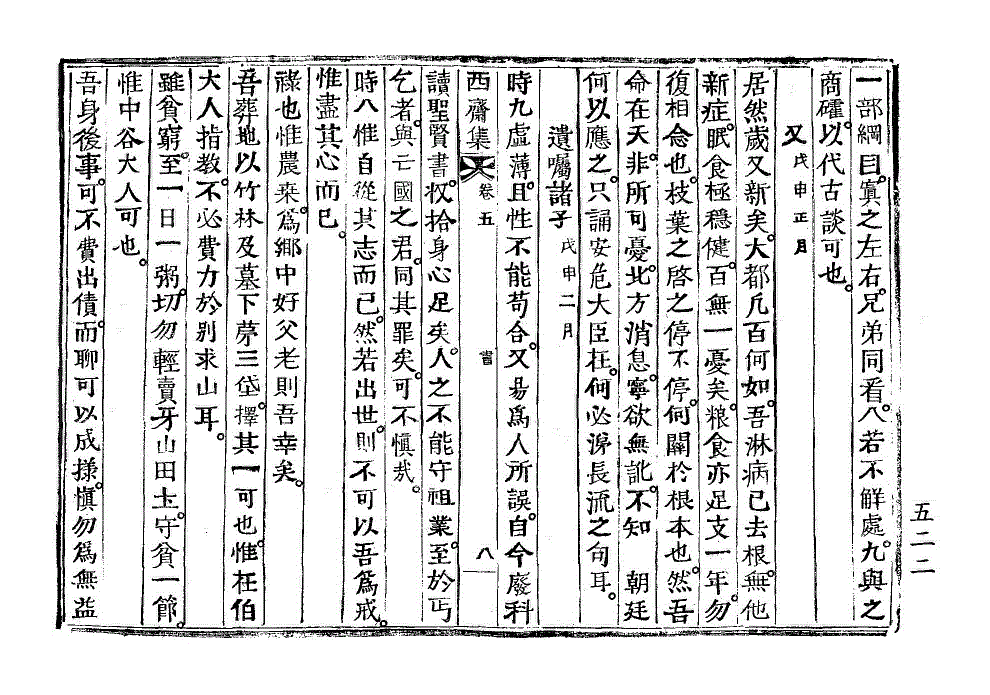 一部綱目。寘之左右。兄弟同看。八若不解處。九與之
商確。以代古談可也。
又戊申正月
居然歲又新矣。大都凡百何如。吾淋病已去根。無他
新症。眠食極穩健。百無一憂矣。粮食亦足支一年。勿
復相念也。枝葉之啓之停不停。何關於根本也。然吾
命在天。非所可憂。北方消息。寧欲無訛。不知 朝廷
何以應之。只誦安危大臣在。何必淚長流之句耳。
遺囑諸子戊申二月
時九虛薄。且性不能苟合。又易爲人所誤。自今廢科
西齋集 卷五 書 八
讀聖賢書。收拾身心足矣。人之不能守祖業。至於丐
乞者。與亡國之君。同其罪矣。可不愼哉。
時八惟自從其志而已。然若出世。則不可以吾爲戒。
惟盡其心而已。
祿也惟農桒。爲鄕中好父老則吾幸矣。
吾葬地以竹林及墓下茅三垈。擇其一可也。惟在伯
大人指教。不必費力於別求山耳。
雖貧窮。至一日一粥。切勿輕賣牙山田土。守貧一節。
惟中谷大人可也。
吾身後事。可不費出債。而聊可以成㨾。愼勿爲無益
五二二